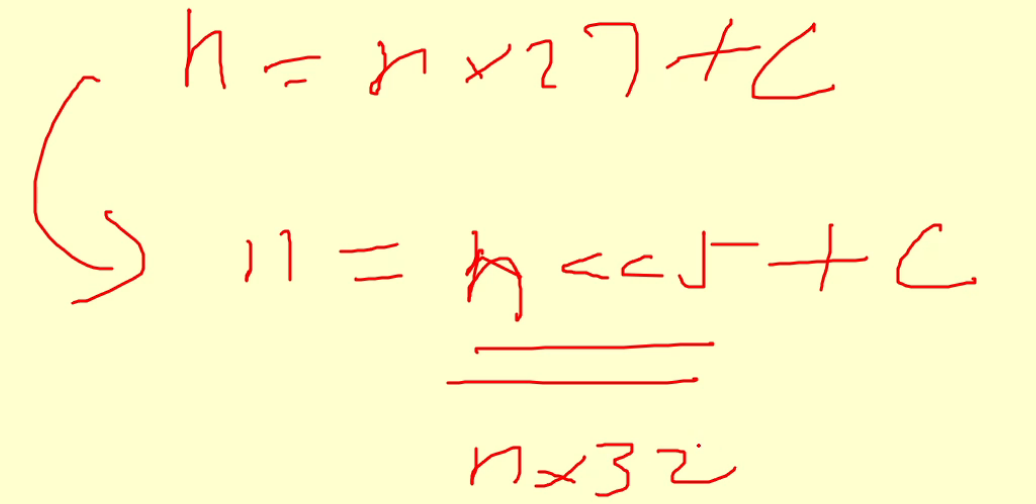 n = n × 27 + C
n = n << 5 + C
n × 32